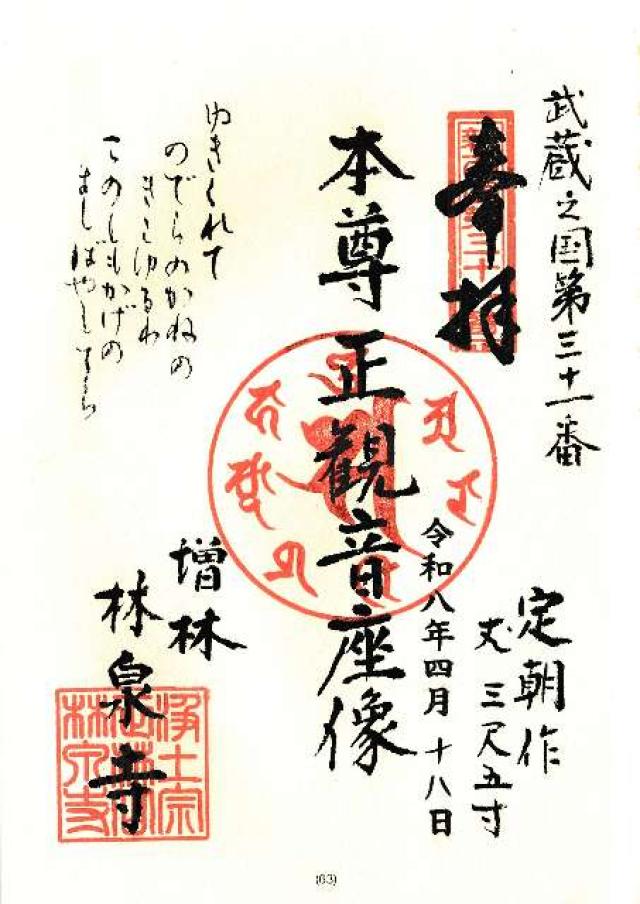 武蔵之国第三十一番
奉拝
定朝作
丈三尺五寸
令和八年四月十八日
本尊正観音座像
ゆきくれて
のでらのかねの
きこゆるわ
このしもかげの
ましばやしてら
増林
林泉寺
浄土宗
林泉寺
(63)